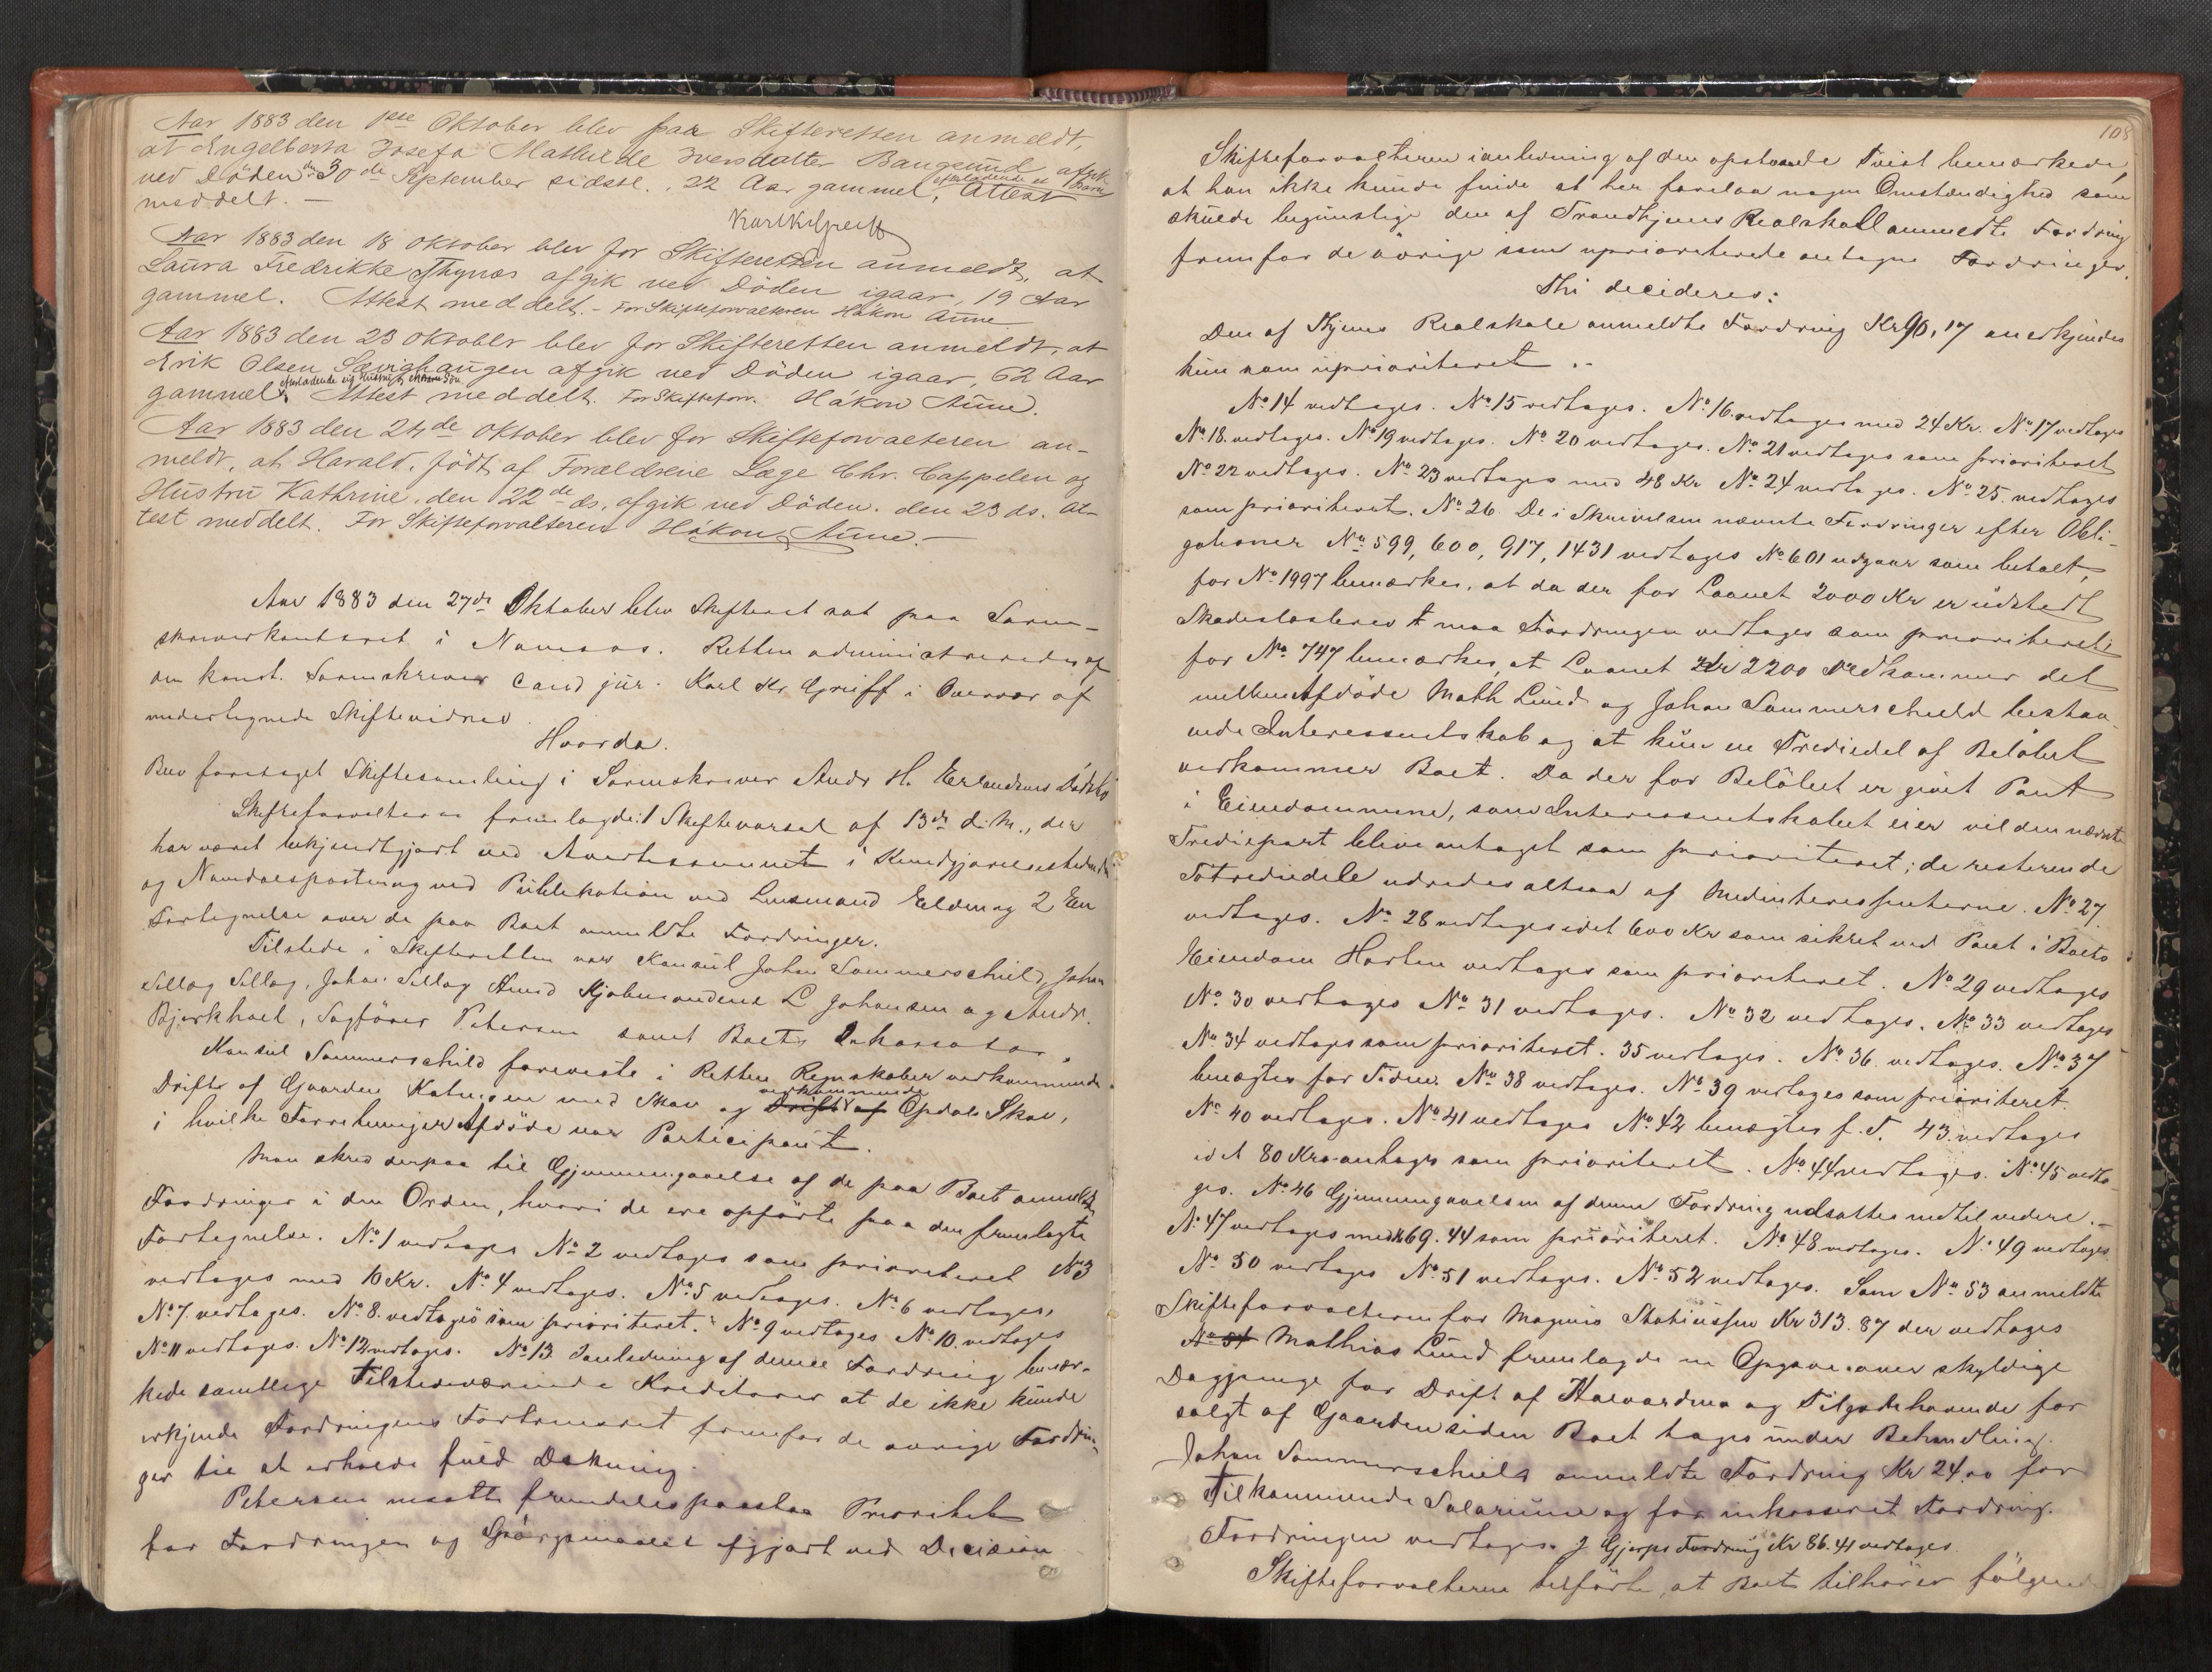 Aar 1883 den 1ste Oktober blev paa Skifteretten anmeldt,
at Engelberta Josefa Mathilde Iversdatter Bangsund afgik
ved Döden den 30de September sidstl., 22 Aar gammel, efterladende et Barn Attest
meddelt. —
Karl Kr Greiff
Aar 1883 den 18 Oktober blev for Skifteretten anmeldt, at
Laura Fredrikke Thynæs afgik ved Döden igaar, 19 Aar
gammel. Attest meddelt. – For Skifteforvalteren Håkon Aune
Aar 1883 den 23 Oktober blev for Skifteretten anmeldt, at
Erik Olsen Sævighaugen afgik ved Döden igaar, 62 Aar
gammel, efterladende sig Hustru og Attest meddelt. For Skifteforv. Håkon Aune.
Aar 1883 den 24de Oktober blev for Skifteforvalteren an-
meldt, at Harald, födt af Forældrene Læge Chr. Cappelen og
Hustru Kathrine, den 22de ds, afgik ved Döden den 23 ds. At-
test meddelt. For Skifteforvalteren Håkon Aune. —
Aar 1883 den 27de Oktober blev Skifteret sat paa Soren-
skriverkontoret i Namsos. Retten administreredes af
den konst. Sorenskriver Cand jur. Karl Kr Greiff i Overvær af
undertegnede Skiftevidner.
Hvorda.
Blev foretaget Skiftesamling i Sorenskriver Andr H. Erlandsens Dödsbo
Skifteforvalteren fremlagde: 1 Skiftevarsel af 13de d. M., der
har været bekjendtgjort ved Avertissement i Kundgjørelsestidende
og Namdalsposten og ved Publikation ved Lensmand Elden og 2 En
Fortegnelse over de paa Boet anmeldte Fordringer.
Tilstede i Skifteretten var Konsul Johan Sommerschield, Johan
Sellæg Sellæg, Johan Sellæg Amd Kjøbmændene L Johansen og Andr.
Bjørkhoel, Sagförer Petersen samt Boets Inkassator.
Konsul Sommerschield foreviste i Retten Regnskaber vedkommende
Drifte af Gaarden med Skov og vedkommende Drift af Opdals Skov,
i hvilke Forretninger Afdöde var Participant.
Man skred derpaa til Gjennemgaaelse af de paa Boet anmeldte
Fordringer i den Orden, hvori de ere opförte paa den fremlagte
Fortegnelse. No 1 vedtages No 2 vedtages som prioriteret No 3
vedtages med 10 Kr. No 4 vedtages. No 5 vedtages. No 6 vedtages,
No 7. vedtages. No 8. vedtages som prioriteret. No 9 vedtages No 10. vedtages
No 11 vedtages. No 12 vedtages. No 13. I anledning af denne Fordring bemær-
kede samtlige Tilstedeværende Kreditorer at de ikke kunde
erkjende Fordringens Fortrinsret fremfor de øvrige Fordrin-
ger til at erholde fuld Dækning.
Petersen maatte fremdeles paastaa Prioritet
for Fordringen og Spörgsmaalet afgjort ved Decision
108
Skifteforvalteren i anledning af den opstaaede Tvist bemærkede,
at han ikke kunde finde at her forelaa nogen Omstændighed som
skulde begunstige den af Trondhjems Realskole anmeldte Fordring
fremfor de övrige som uprioriterede antagne Fordringer.
Thi decideres:
Den af Thjems Realskole anmeldte Fordring Kr 90,17 anerkjendes
kun som uprioriteret.
No 14 vedtages. No 15 vedtages. No 16. vedtages med 24 Kr. No 17 vedtages
No 18. vedtages. No 19 vedtages. No 20 vedtages. No 21 vedtages som prioriteret
No 22 vedtages. No 23 vedtages med 48 Kr No 24 vedtages. No 25. vedtages
som prioriteret. No 26. De i Skrivelsen nævnte Fordringer efter Obli-
gationer No 599, 600, 917, 1431 vedtages No 601 udgaar som betalt,
for No 1997 bemærkes, at da der for Laanet 2000 Kr er udstedt
Skadeslösbrev maa Fordringen vedtages som prioriteret;
for No 747 bemærkes, at Laanet Kr 2200 vedkommer det
mellem Afdöde Math Lund og Johan Sommerschield bestaa-
ende Interessentskab og at kun en Trediedel af Belöbet
vedkommer Boet. Da der for Belöbet er givet Pant
i Eiendommene, som Interessentskabet eier vil den nævnte
Trediepart blive antaget som prioriteret; de resterende
Totrediedele udredes altsaa af Medinteressenterne. No 27.
vedtages. No 28 vedtages idet 600 Kr som sikret ved Pant i Boets
Eiendom Horten vedtages som prioriteret. No 29 vedtages
No 30 vedtages No 31 vedtages. No 32 vedtages. No 33 vedtages
No 34 vedtages som prioriteret. 35 vedtages. No 36. vedtages. No 37
benægtes for Tiden. No 38 vedtages. No 39 vedtages som prioriteret.
No 40 vedtages. No 41 vedtages No 42 benægtes f. T. 43. vedtages
idet 80 Kro antages som prioriteret. No 44 vedtages. No 45 vedta-
ges. No 46 Gjennemgaaelsen af denne Fordring udsattes indtil videre. –
No 47 vedtages med Kr 69.44 som prioriteret. No 48 vedtages. No 49 vedtages.
No 50 vedtages No 51 vedtages. No 52 vedtages. Som No 53 anmeldte
Skifteforvalteren for Magnus Statiussen Kr 313.87 der vedtages
No 54 Mathias Lund fremlagde en Opgave over skyldige
Dagpenge for Drift af og Tilgodehavende for
solgt af Gaarden siden Boet toges under Behandling.
Johan Sommerschield anmeldte Fordring Kr 24.00 for
Tilkommende Salarium og for inkasseret Fordring.
Fordringen vedtages. J Gjerps Fordring Kr 86.41 vedtages.
Skifteforvalteren tilförte, at Boet tilhører fölgende